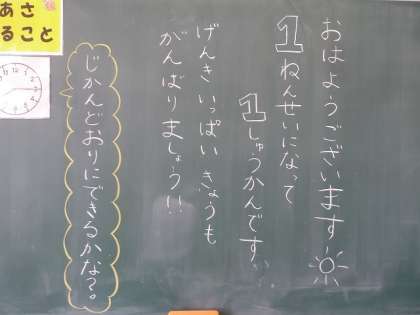 おはようございます
1ねんせいになって
1しゅうかんです
げんきいっぱいきょうも
がんばりましょう!!
じかんどおりにできるかな?。
あさ
ること